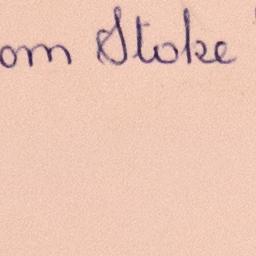 om Stoke